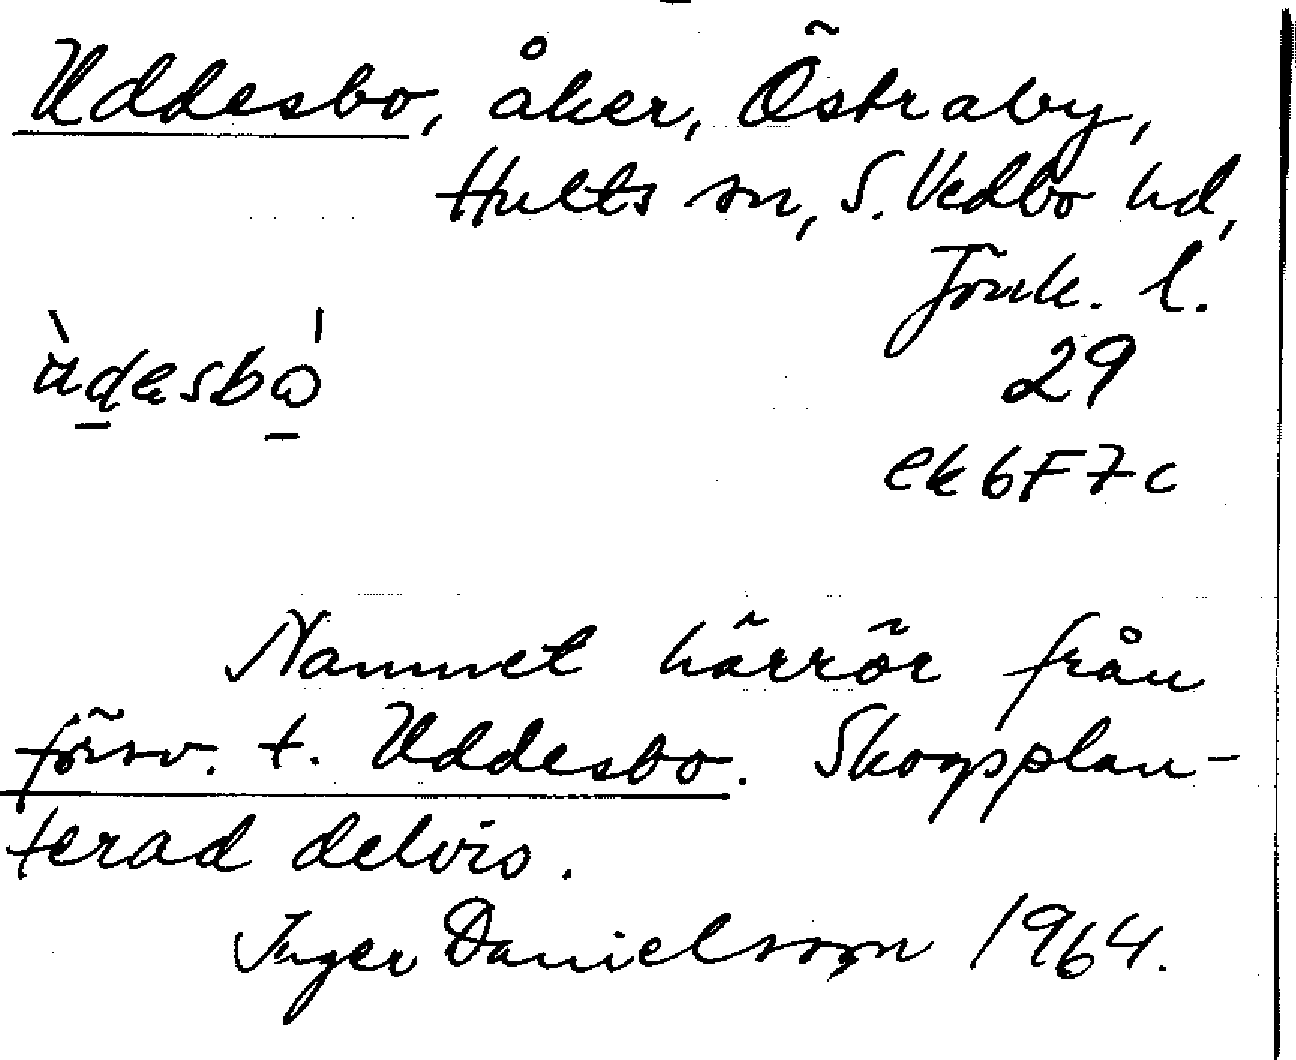 Uddesbo, åker, Östraby,
Hults sn, S. Vedbo hd,
Jönk. l.
29
ek 6F7c
Namnet härrör från
försv. t. Uddesbo. Skogsplan-
terad delvis.
Inger Danielsson 1964.